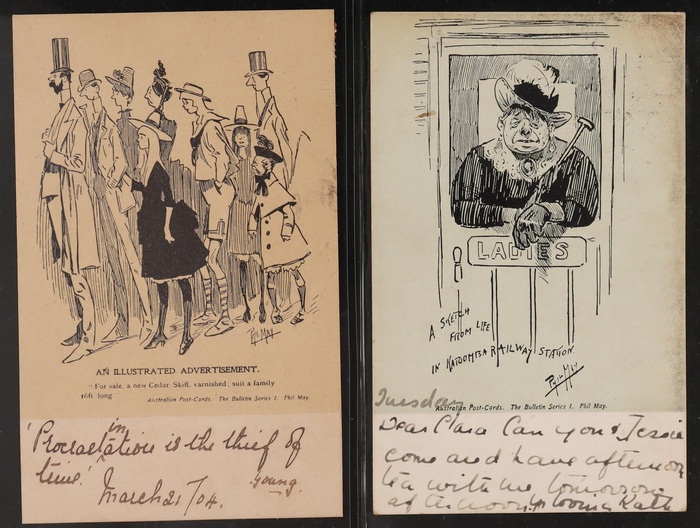 PHIL MAY
AN ILLUSTRATED ADVERTISEMENT.
"For sale, a new Cedar Skiff, varnished, suit a family
16ft long
Australian Post-Cards. The Bulletin Series 1. Phil May.
'Procrastination is the thief of
time.' Young.
March 21/04.
LADIES
A SKETCH
FROM LIFE
IN KATOOMBA RAILWAY STATION
PHIL MAY
Tuesday
Australian Post-Cards. The Bulletin Series 1. Phil May.
Dear Clara Can you & Jessie
come and have afternoon
tea with me tomorrow
afternoon Kath